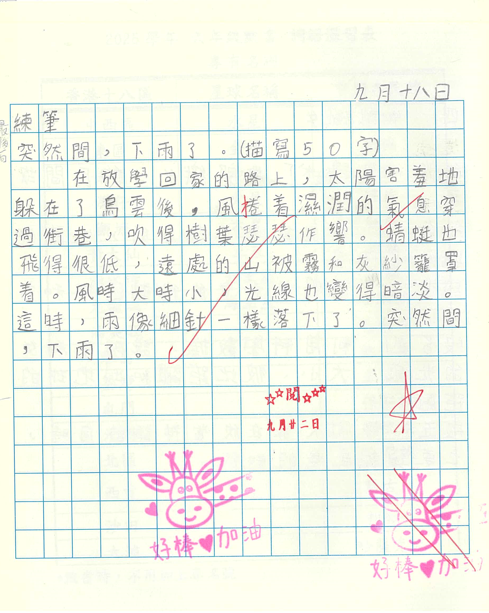 九月十八日
練筆
突然間，下雨了。(描寫50字)
在放學回家的路上，太陽害羞地
躲在了烏雲後。風捲着濕潤的氣息穿
過街巷，吹得樹葉瑟瑟作響。蜻蜓也
飛得很低，遠處的山被霧和灰紗籠罩
着。風時大時小，光線也變得暗淡。
這時，雨像細針一樣落下了。突然間
，下雨了。
閱
九月廿二日
好棒♥加油
好棒♥加油